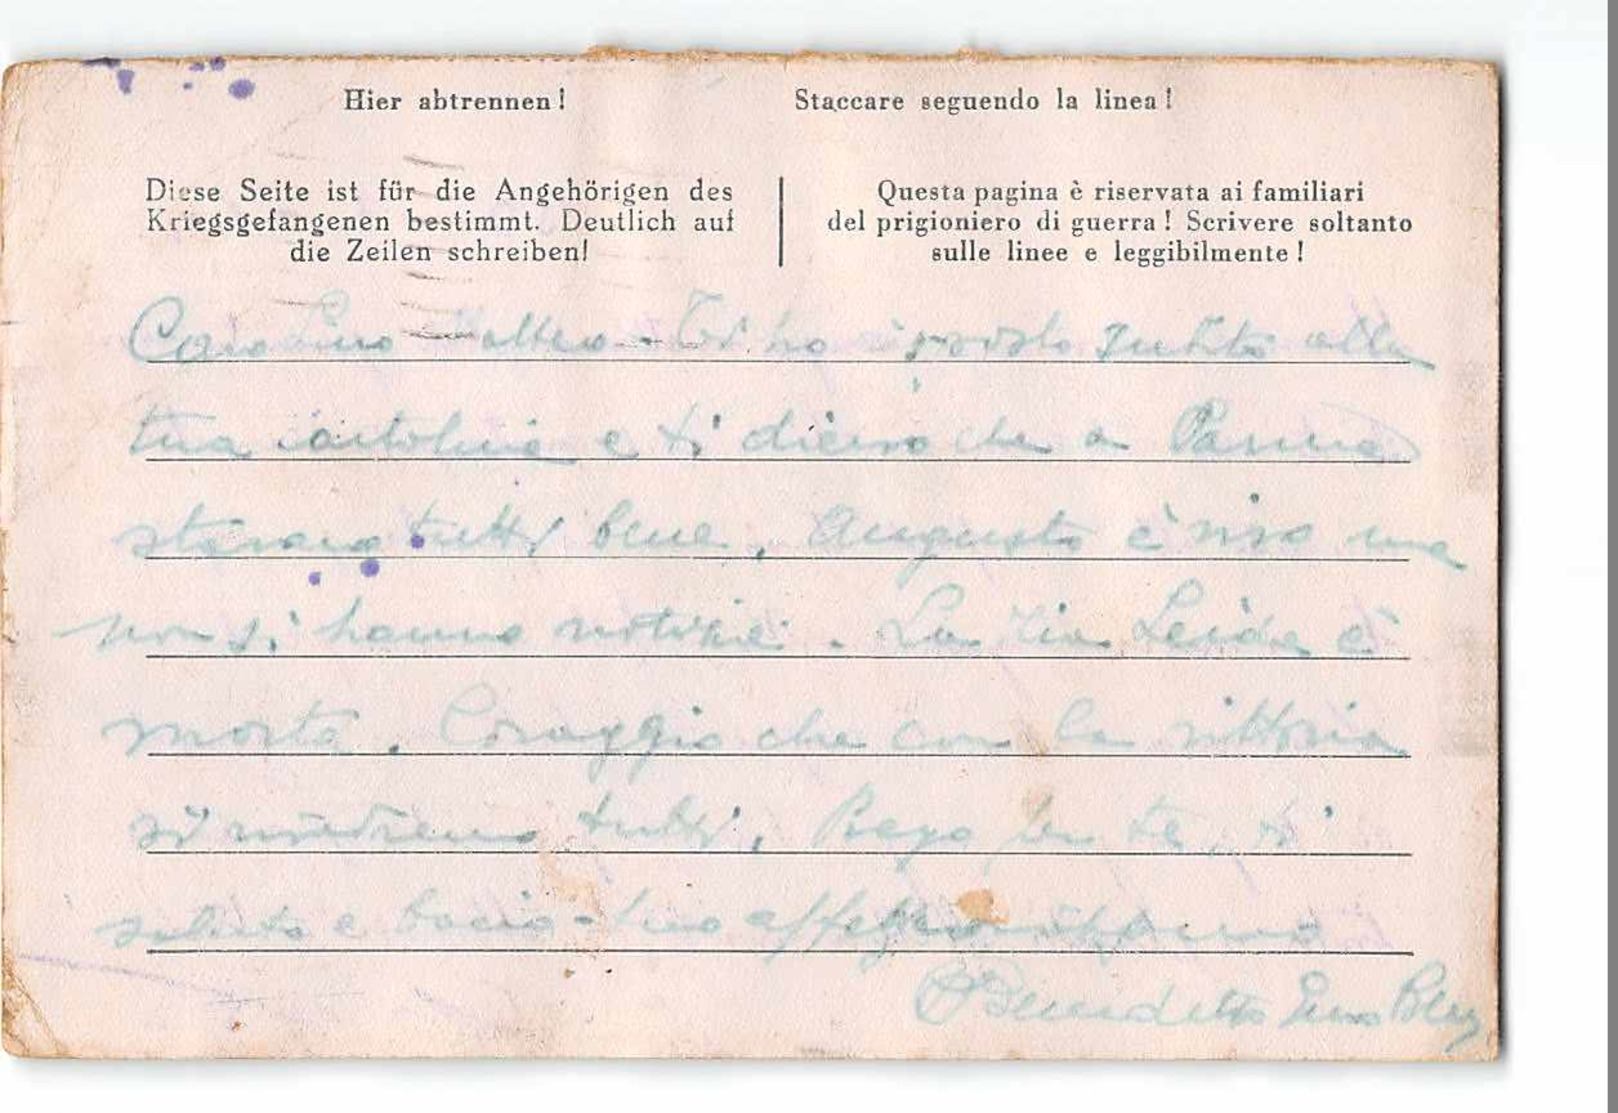 Hier abtrennen!
Staccare seguendo la linea!
Diese Seite ist für die Angehörigen des
Kriegsgefangenen bestimmt. Deutlich auf
die Zeilen schreiben!
Questa pagina è riservata ai familiari
del prigioniero di guerra! Scrivere soltanto
sulle linee e leggibilmente!
Caro - Ti ho risposto subito alla
tua cartolina e ti dicevo che a Parma
stavano tutti bene. Augusto è vivo ma
non si hanno notizie. La zia è
morta. Coraggio che con la vittoria
ci rivedremo tutti. Prego per te, ti
saluto e bacio - tuo
Benedetto